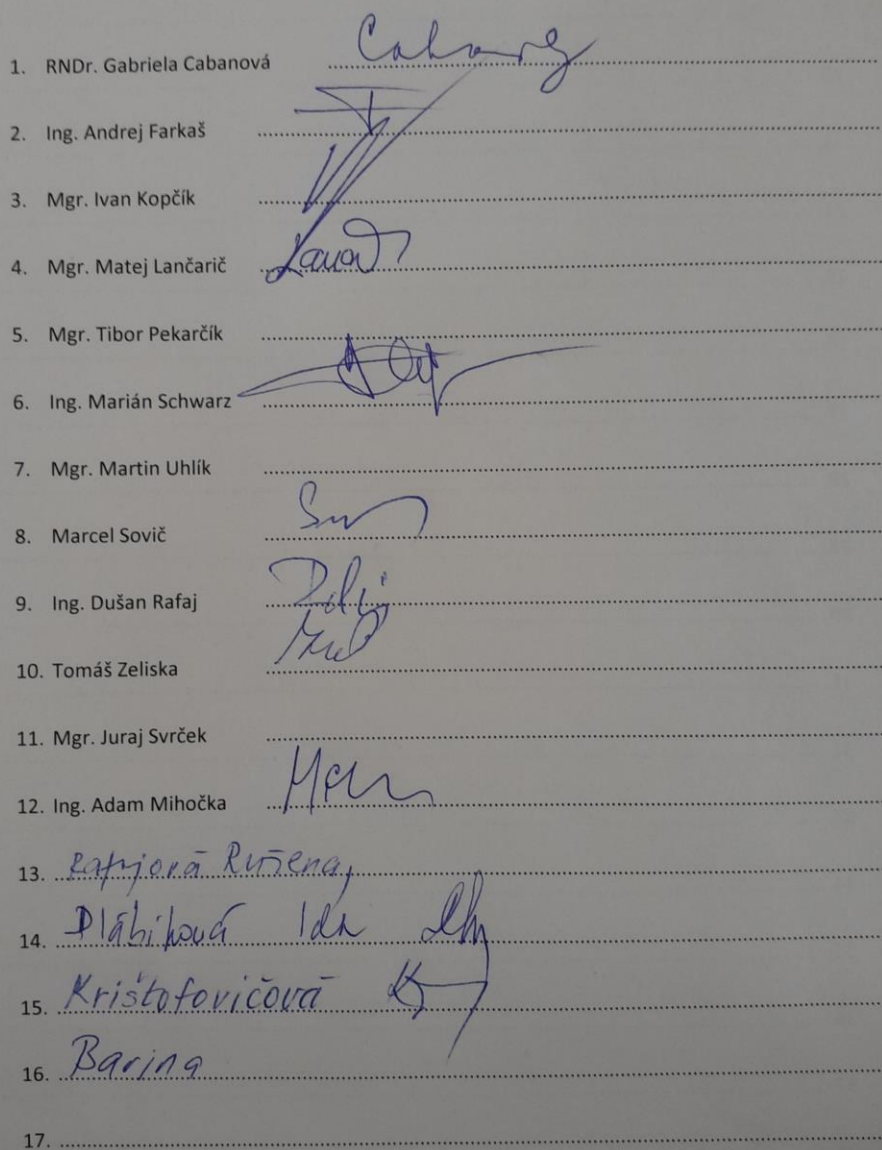 1. RNDr. Gabriela Cabanová
2. Ing. Andrej Farkaš
3. Mgr. Ivan Kopčík
4. Mgr. Matej Lančarič
5. Mgr. Tibor Pekarčík
6. Ing. Marián Schwarz
7. Mgr. Martin Uhlík
8. Marcel Sovič
9. Ing. Dušan Rafaj
10. Tomáš Zeliska
11. Mgr. Juraj Svrček
12. Ing. Adam Mihočka
13. Ružena
14. Dlábiková Ida
15. Krištofovičová
16. Barina
17.